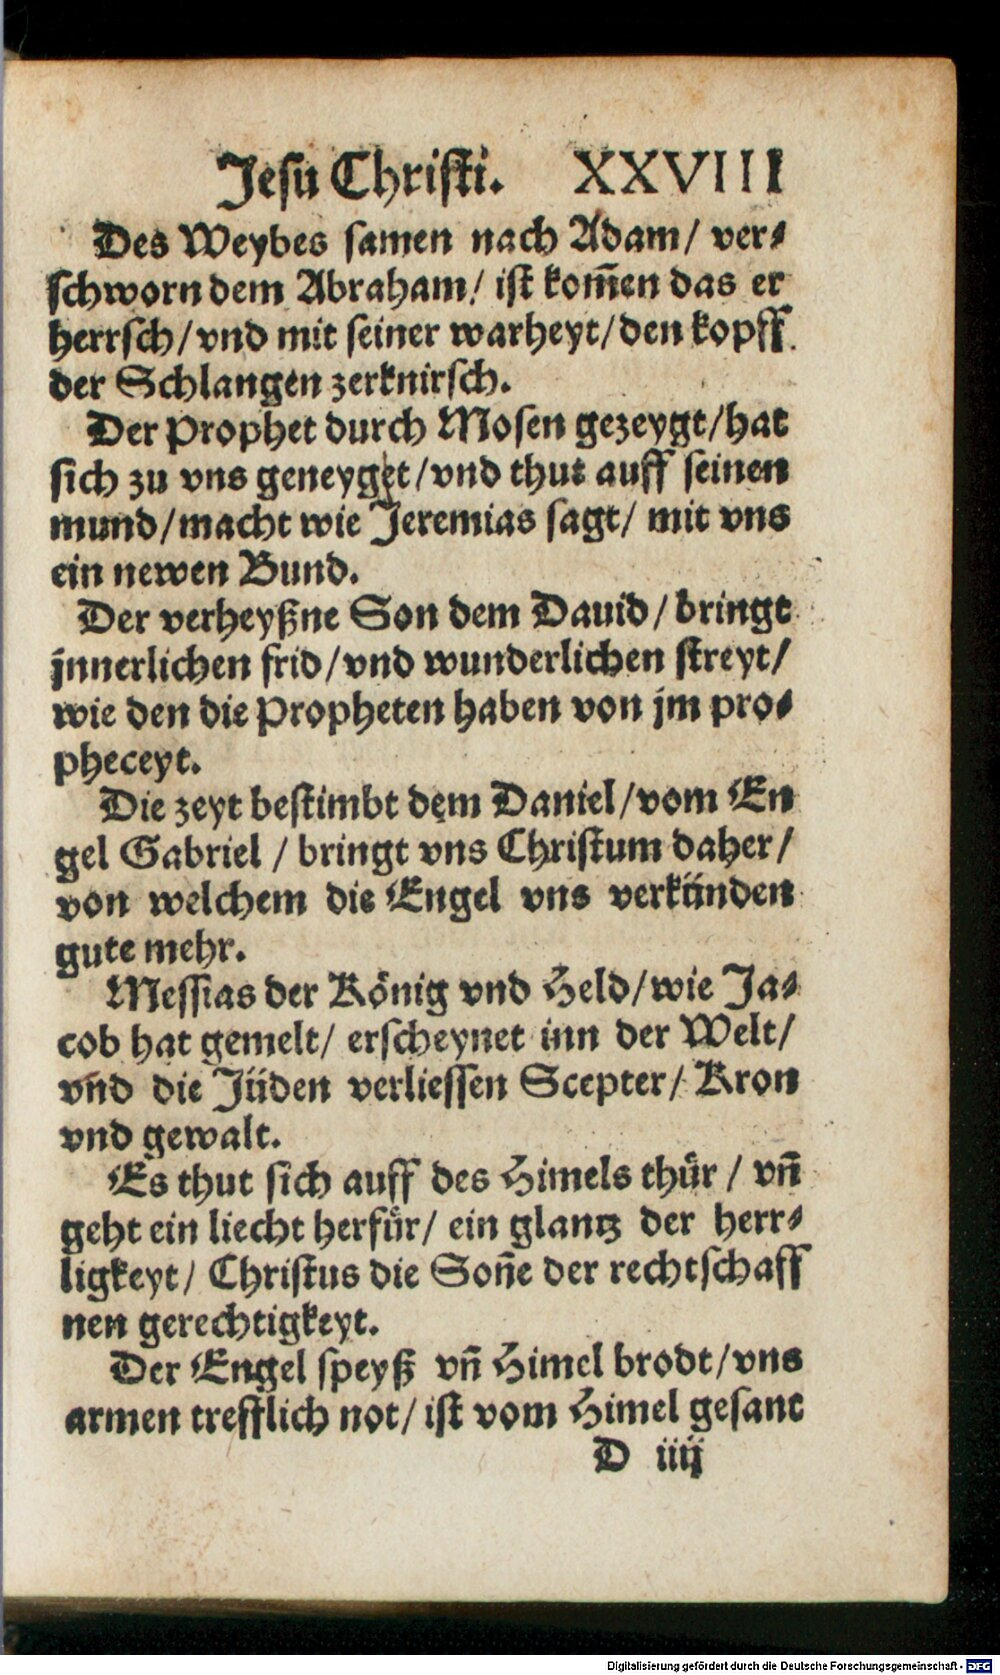 Jesu Christi. XXVIII
Des Weybes samen nach Adam/ ver⸗
schworn dem Abraham/ ist kom̃en das er
herrsch/vnd mit seiner warheyt/den kopff
der Schlangen zerknirsch.
Der Prophet durch Mosen gezeygt/hat
sich zu vns geneyget/vnd thut auff seinen
mund/macht wie Jeremias sagt/ mit vns
ein newen Bund.
Der verheyßne Son dem Dauid/ bringt
jnnerlichen frid/vnd wunderlichen streyt/
wie den die Propheten haben von jm pro⸗
pheceyt.
Die zeyt bestimbt dem Daniel/vom En
gel Gabriel / bringt vns Christum daher/
von welchem die Engel vns verkünden
gute mehr.
Messias der König vnd Held/wie Ja⸗
cob hat gemelt/ erscheynet inn der Welt/
vñd die Jüden verliessen Scepter/ Kron
vnd gewalt.
Es thut sich auff des Himels thür / vñ
geht ein liecht herfür/ ein glantz der herr⸗
ligkeyt/ Christus die Soñe der rechtschaff
nen gerechtigkeyt.
Der Engel speyß vñ Himel brodt/vns
armen trefflich not/ ist vom Himel gesant
D iiij
Digitalisierung gefördert durch die Deutsche Forschungsgemeinschaft - DFG